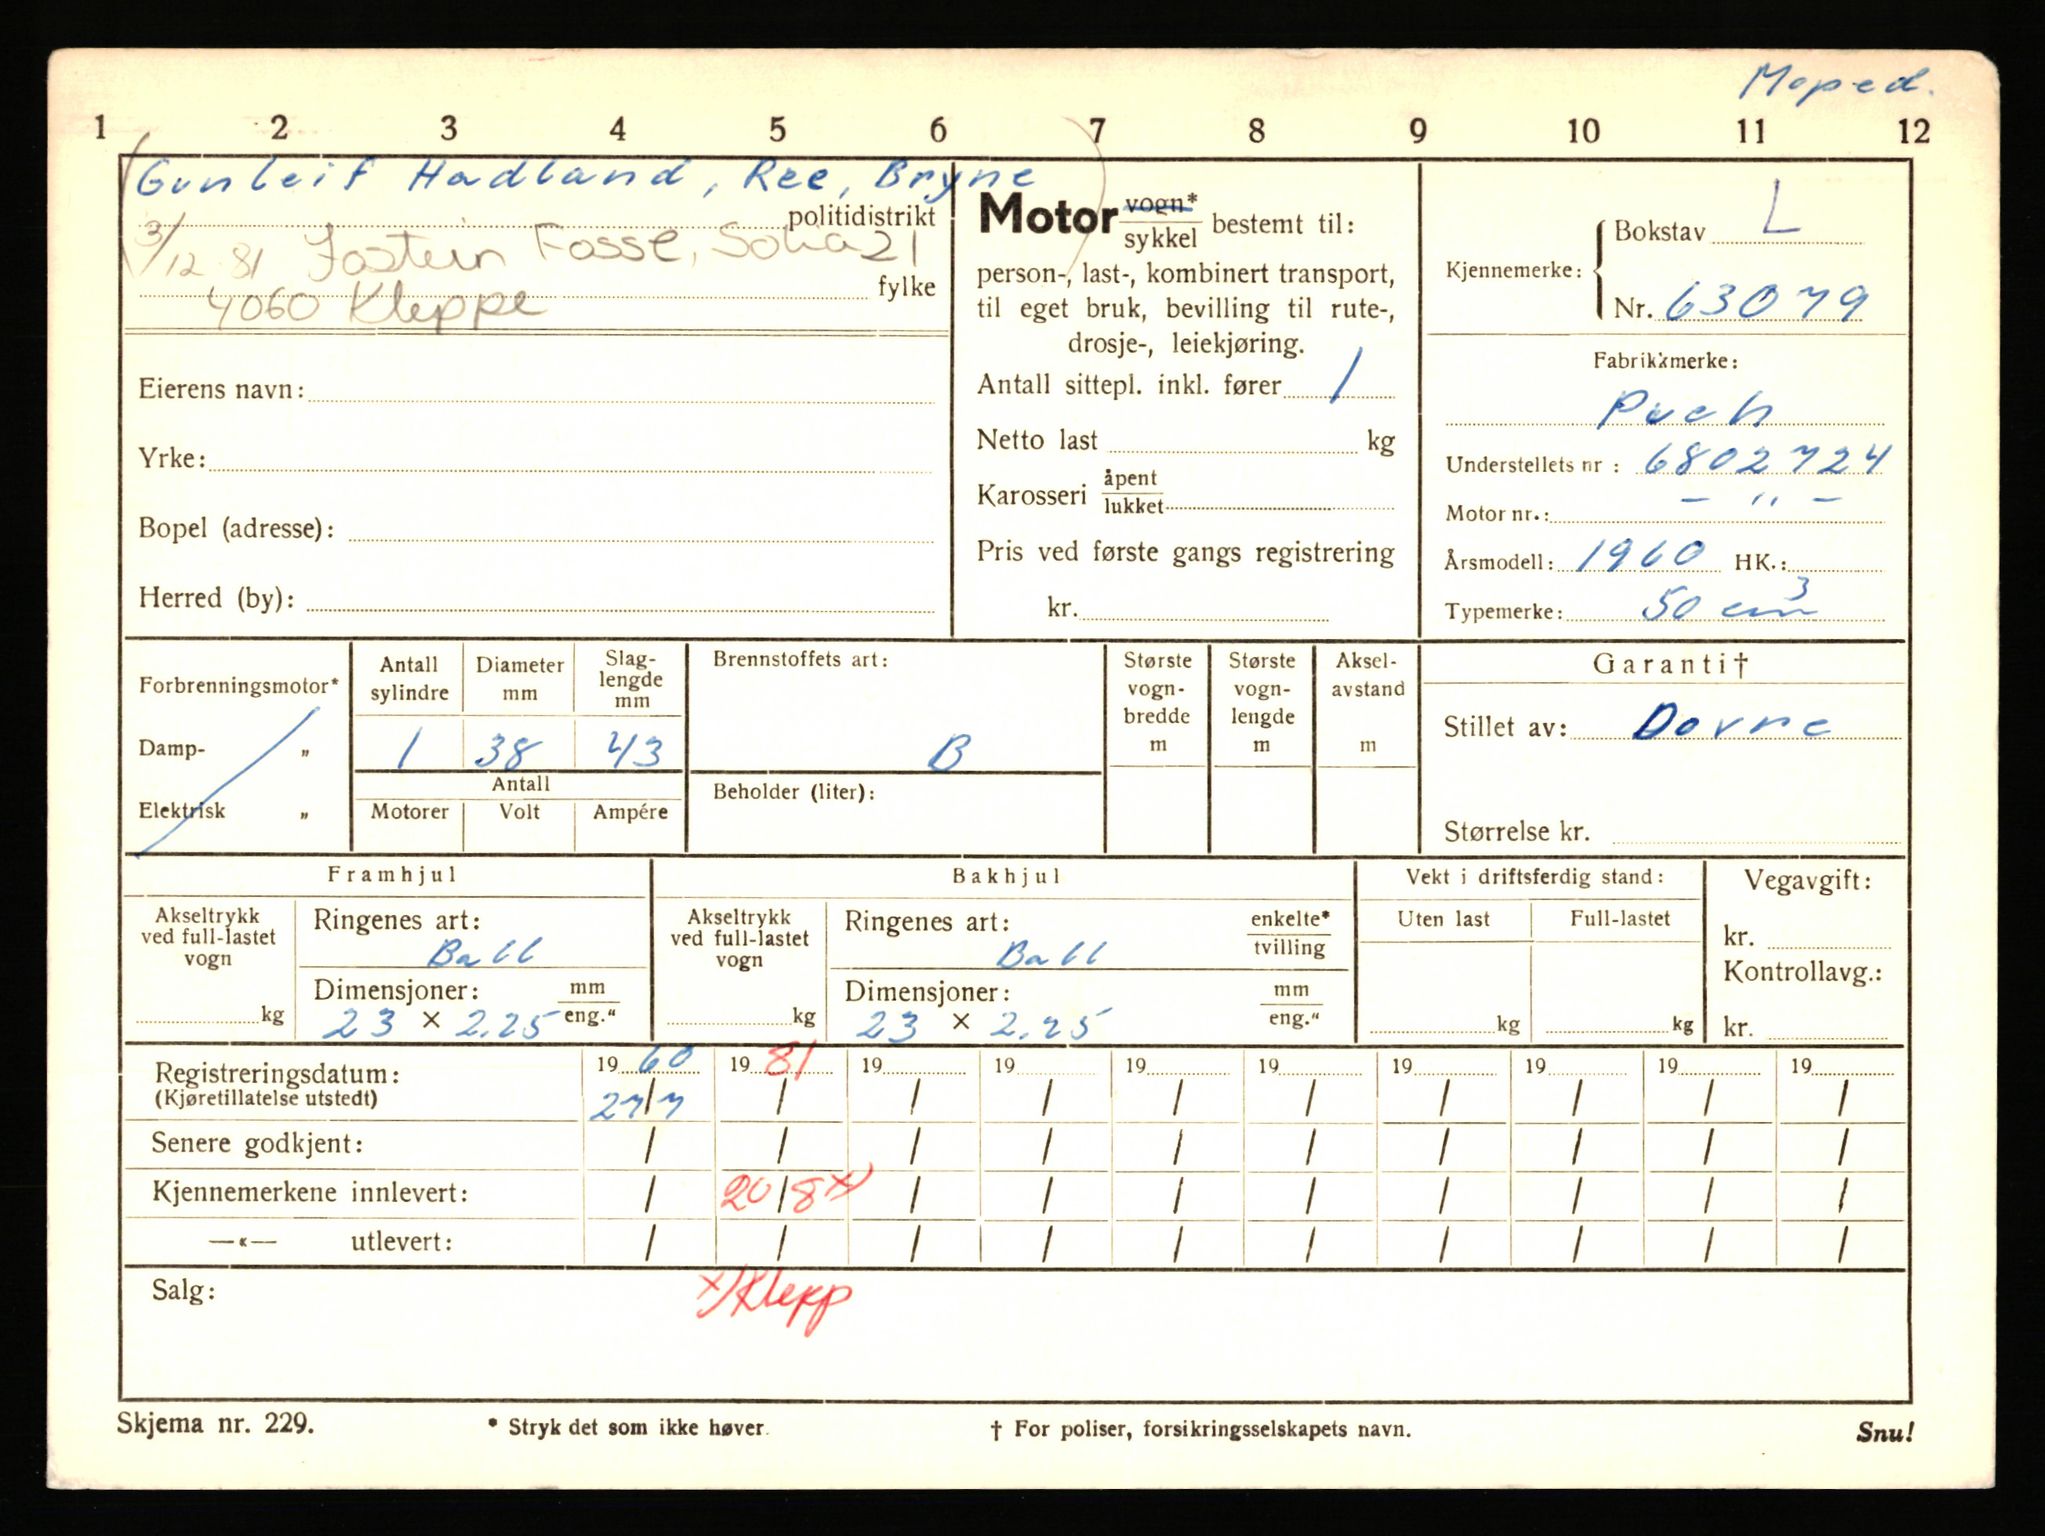 Moped.
1 2 3 4 5 6 7 8 9 10 11 12
Gunleif Hadland, Ree, Bryne
politidistrikt
3/12 81 Jostein Fosse, Solia 21
fylke
4060 Kleppe
Eierens navn:
Yrke:
Bopel (adresse):
Herred (by):
Motor vogn* / sykkel bestemt til:
person-, last-, kombinert transport,
til eget bruk, bevilling til rute-,
drosje-, leiekjøring.
Antall sittepl. inkl. fører 1
Netto last kg
Karosseri åpent / lukket
Pris ved første gangs registrering
kr.
Kjennemerke:
Bokstav L
Nr. 63079
Fabrikkmerke:
Puch
Understellets nr : 6802724
Motor nr.: — " —
Årsmodell: 1960 HK.:
Typemerke: 50 cm³
Forbrenningsmotor*
Damp- „
Elektrisk „
Antall sylindre
Diameter mm
Slag-
lengde
mm
1 38 43
Antall
Motorer Volt Ampére
Brennstoffets art:
B
Beholder (liter):
Største
vogn-
bredde
m
Største
vogn-
lengde
m
Aksel-
avstand
m
Garanti†
Stillet av: Dovre
Størrelse kr.
Framhjul
Akseltrykk
ved full-lastet
vogn
kg
Ringenes art:
Ball
Dimensjoner: mm / eng."
23 × 2.25
Bakhjul
Akseltrykk
ved full-lastet
vogn
kg
Ringenes art: enkelte* / tvilling
Ball
Dimensjoner: mm / eng."
23 × 2.25
Vekt i driftsferdig stand:
Uten last Full-lastet
kg kg
Vegavgift:
kr.
Kontrollavg.:
kr.
Registreringsdatum: 1960 1981 19 19 19 19 19 19 19 19
(Kjøretillatelse utstedt) 27/7 / / / / / / / / /
Senere godkjent: / / / / / / / / / /
Kjennemerkene innlevert: / 20/8 x) / / / / / / / /
—«— utlevert: / / / / / / / / / /
Salg: x) Klepp
Skjema nr. 229. * Stryk det som ikke høver. † For poliser, forsikringsselskapets navn. Snu!